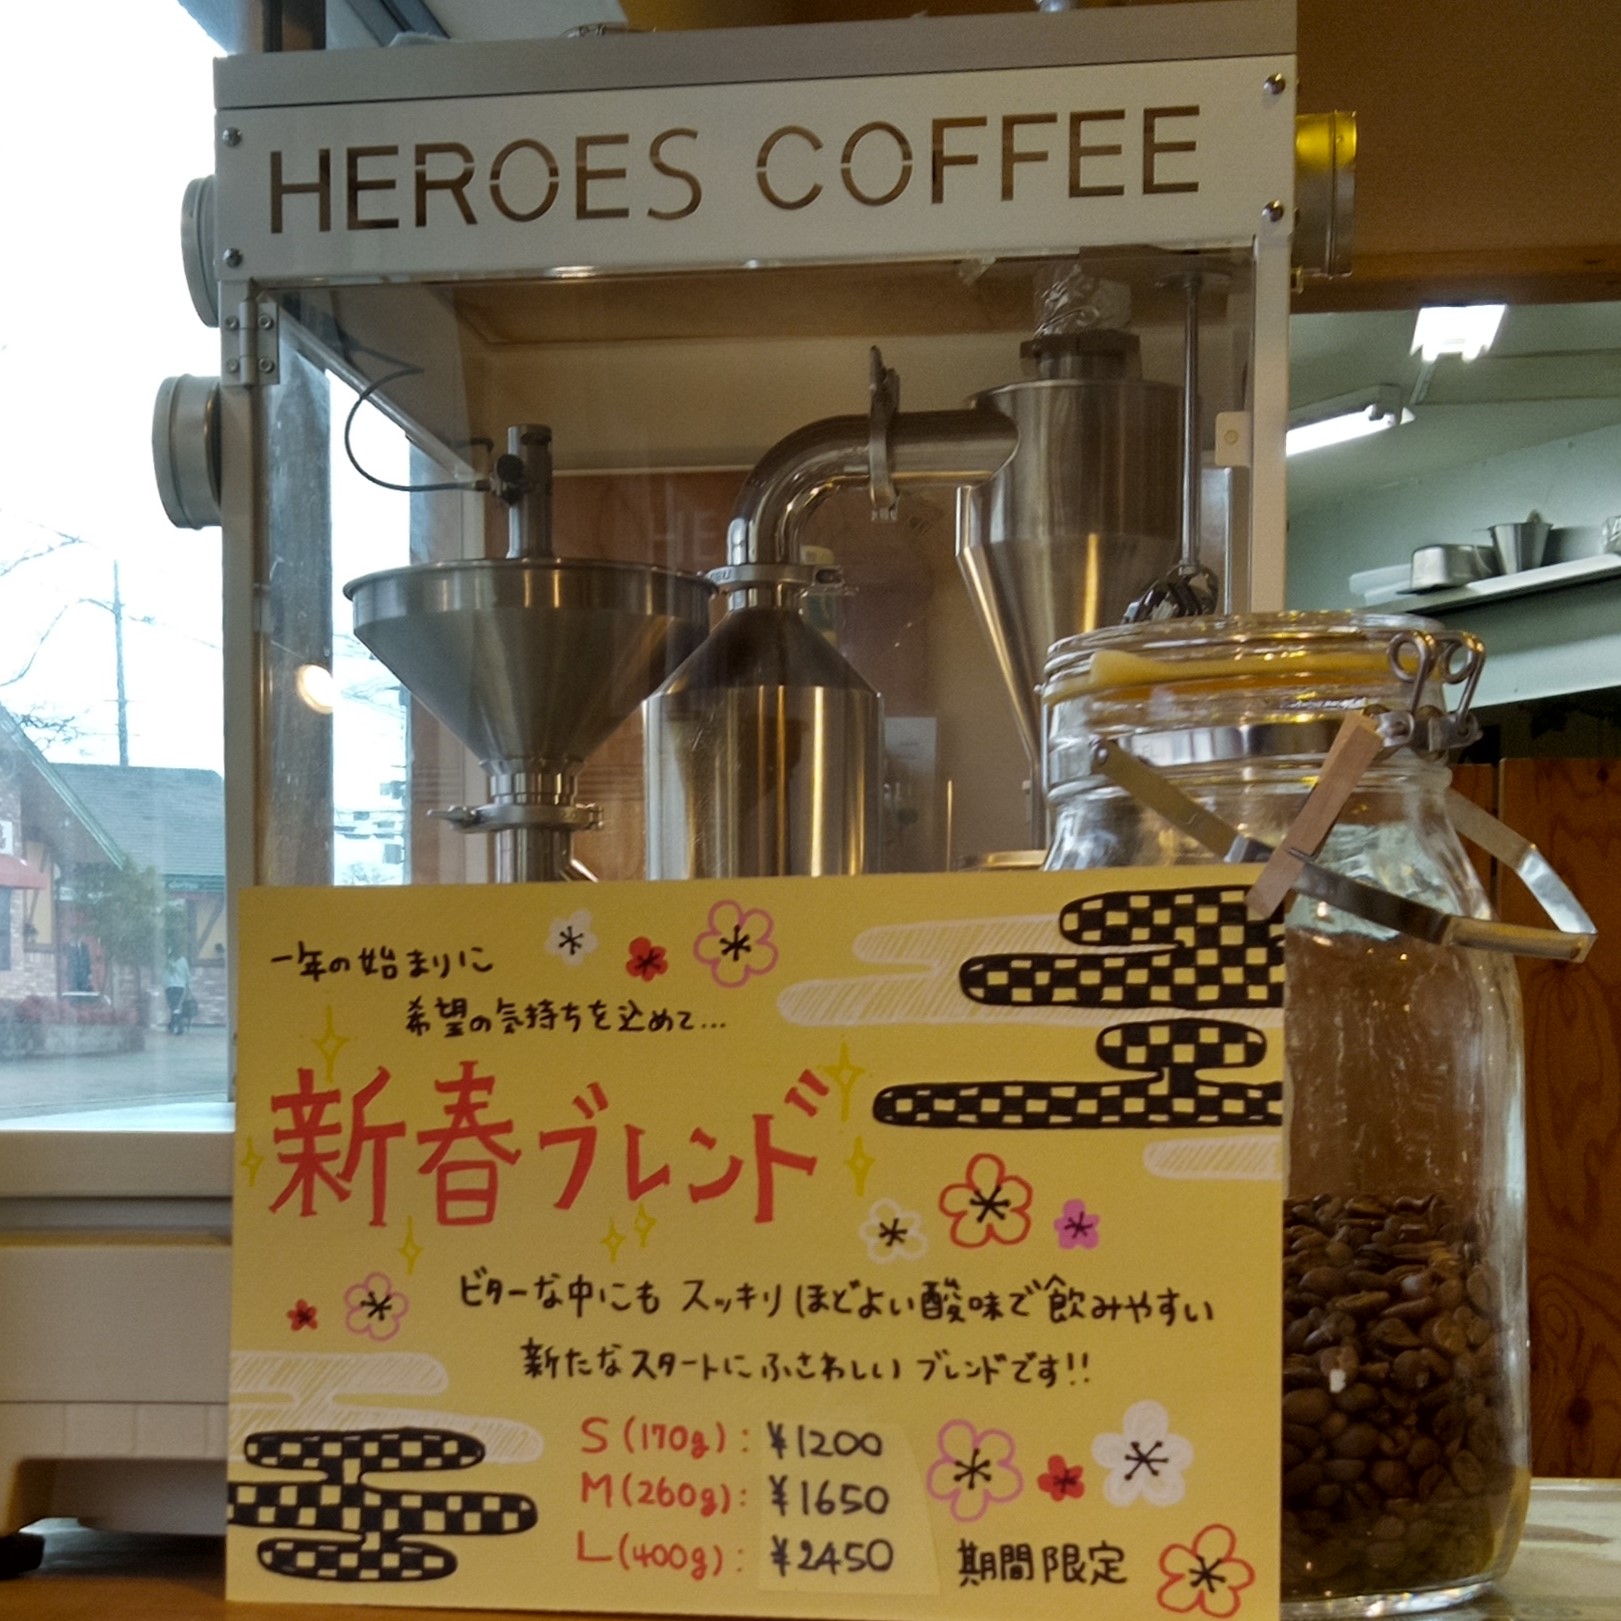 HEROES COFFEE
一年の始まりに
希望の気持ちを込めて...
新春ブレンド
ビターな中にも スッキリほどよい酸味で飲みやすい
新たなスタートにふさわしいブレンドです!!
S(170g): ¥1200
M(260g): ¥1650
L(400g): ¥2450
期間限定